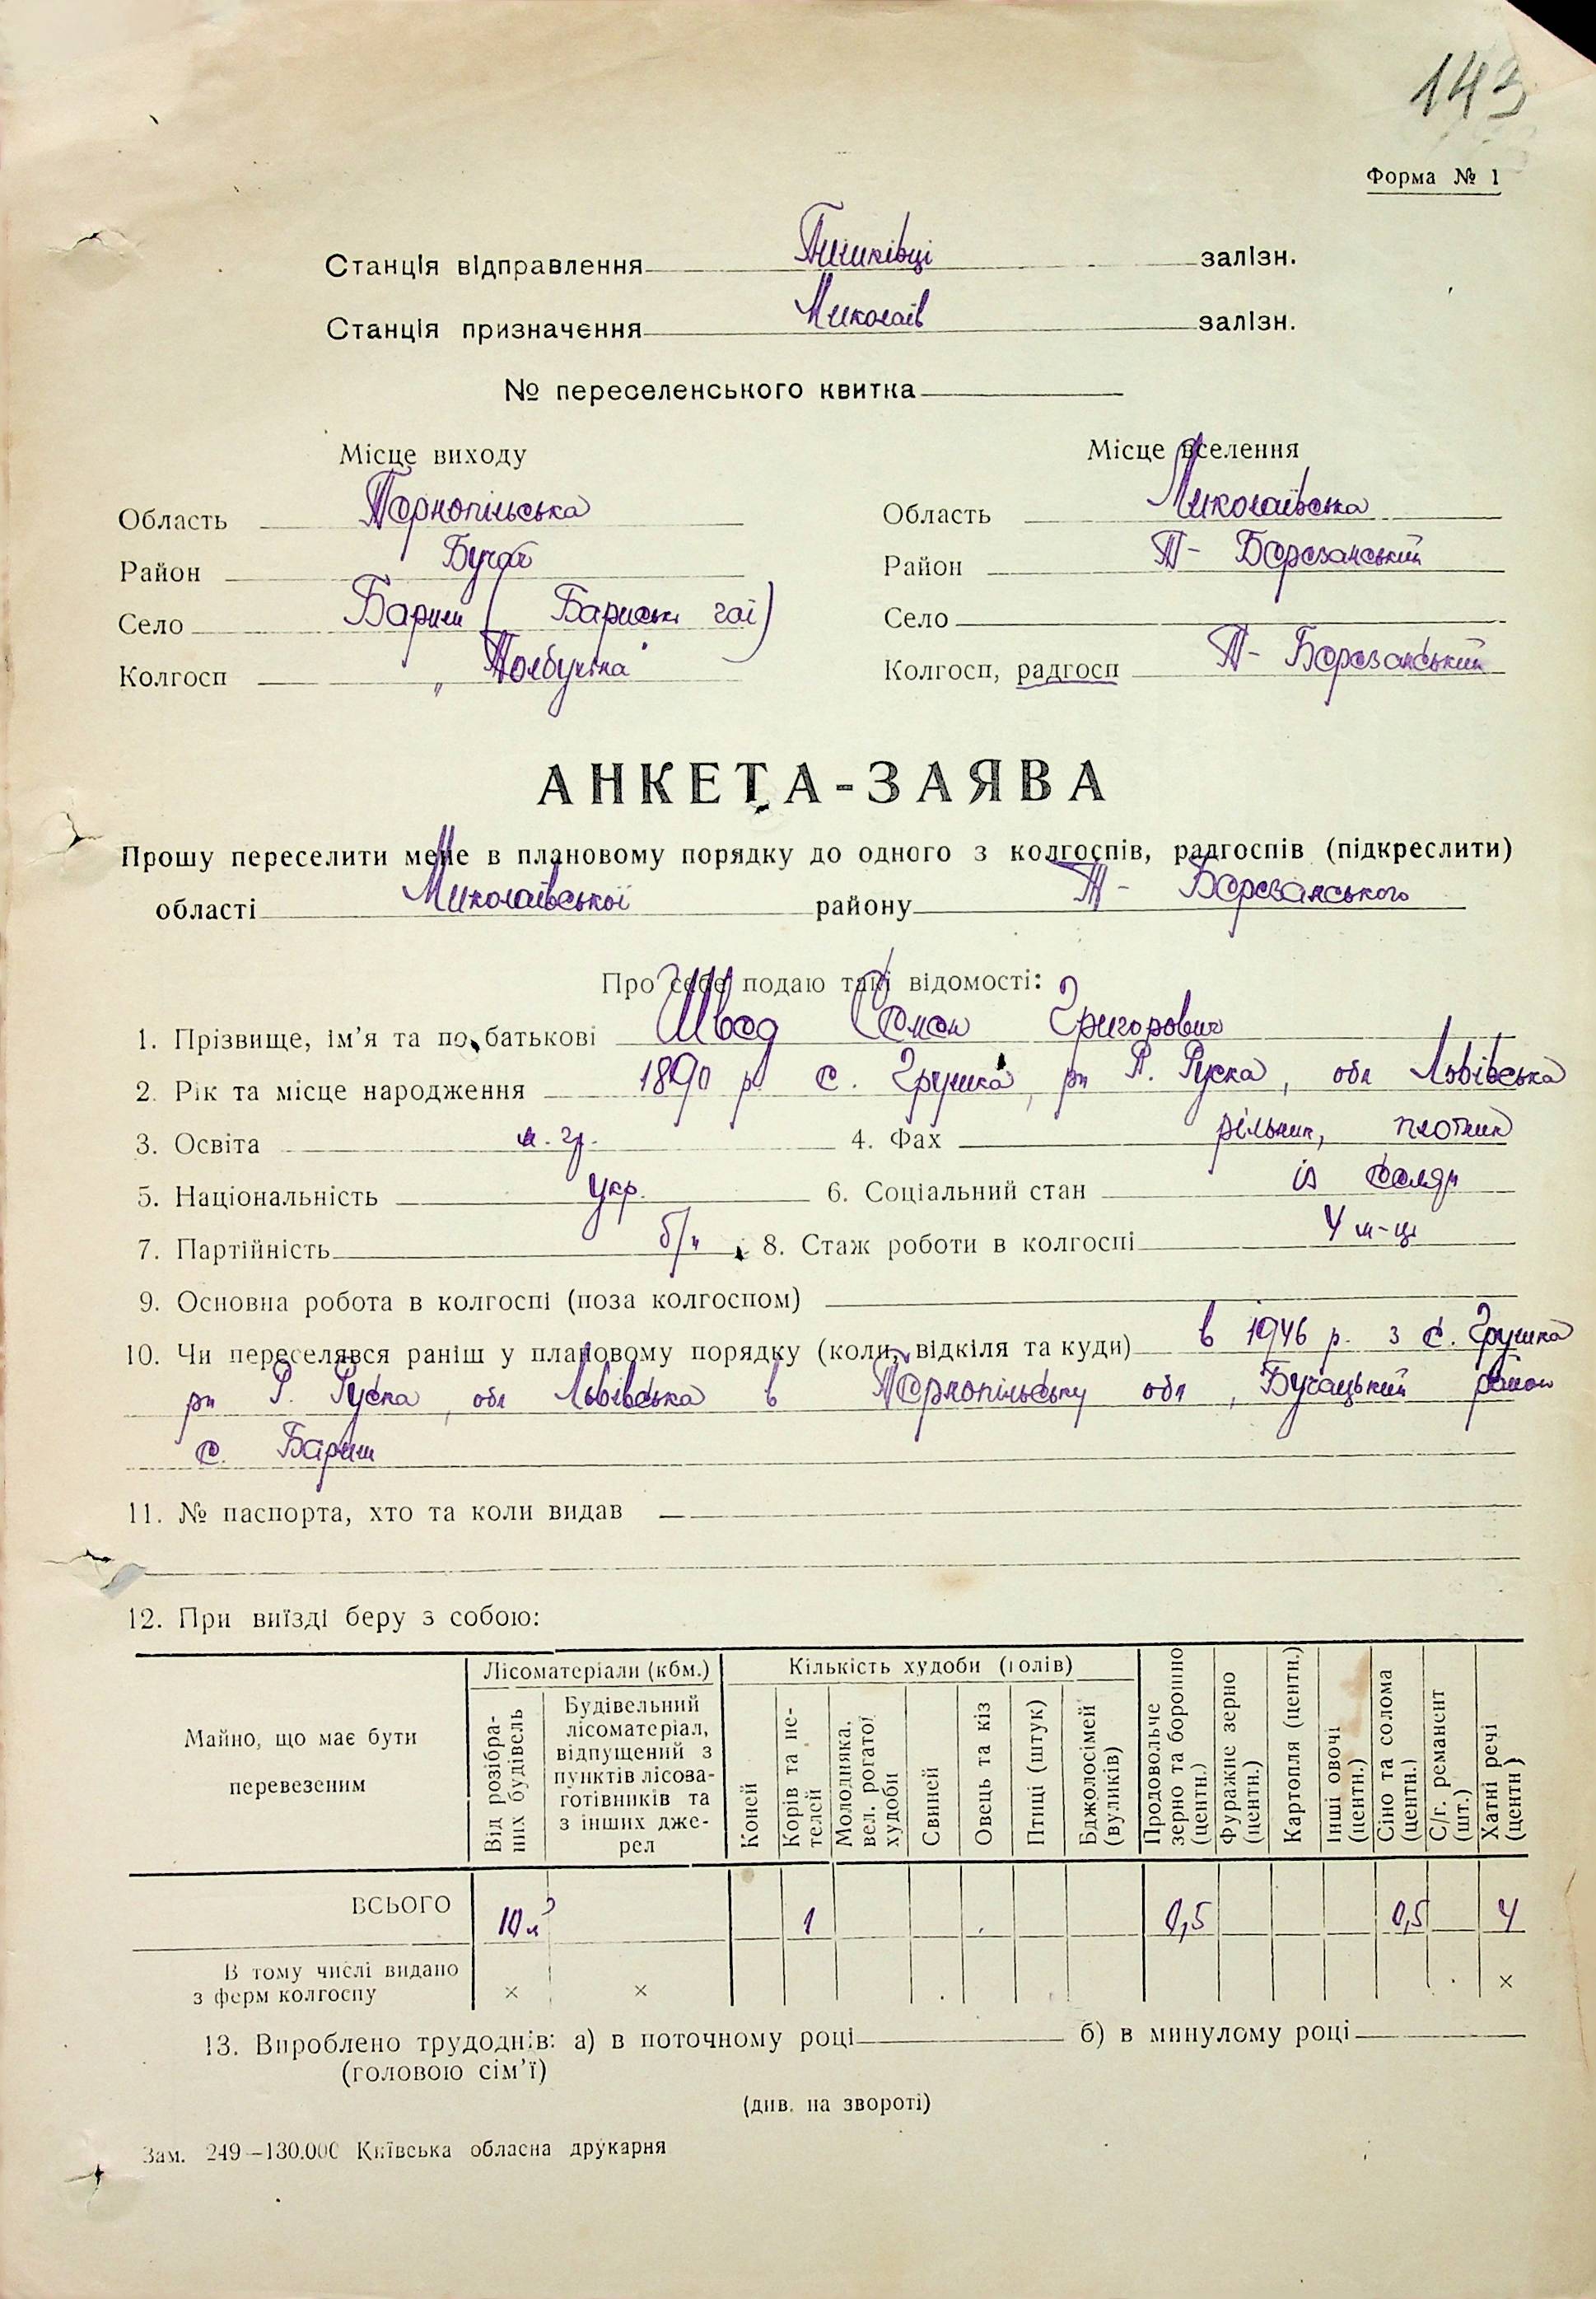 143
Форма № 1
Станція відправлення Пишківці залізн.
Станція призначення Миколаїв залізн.
№ переселенського квитка
Місце виходу
Місце вселення
Область Тернопільська
Область Миколаївська
Район Бучач
Район Т- Березанський
Село Бариш ( Бариські гаї )
Село
Колгосп „Толбухіна"
Колгосп, радгосп Т- Березанський
АНКЕТА-ЗАЯВА
Прошу переселити мене в плановому порядку до одного з колгоспів, радгоспів (підкреслити)
області Миколаївської району Т- Березанського
Про себе подаю такі відомості:
1. Прізвище, ім'я та по батькові Швед Семен Григорович
2. Рік та місце народження 1890 р. с. Грушка, рн Р. Руска, обл Львівська
3. Освіта м. гр. 4. Фах рільник, плотник
5. Національність укр. 6. Соціальний стан із селян
7. Партійність б/п 8. Стаж роботи в колгоспі 4 м-ці
9. Основна робота в колгоспі (поза колгоспом)
10. Чи переселявся раніш у плановому порядку (коли, відкіля та куди) в 1946 р. з с. Грушка
рн Р. Руска, обл Львівська в Тернопільську обл, Бучацький район
с. Бариш
11. № паспорта, хто та коли видав
12. При виїзді беру з собою:
Майно, що має бути перевезеним
Лісоматеріали (кбм.)
Від розібраних будівель
Будівельний лісоматеріал, відпущений з пунктів лісозаготівників та з інших джерел
Кількість худоби (голів)
Коней
Корів та нетелей
Молодняка, вел. рогатої худоби
Свиней
Овець та кіз
Птиці (штук)
Бджолосімей (вуликів)
Продовольче зерно та борошно (центн.)
Фуражне зерно (центн.)
Картопля (центн.)
Інші овочі (центн.)
Сіно та солома (центн.)
С/г. реманент (шт.)
Хатні речі (центн)
ВСЬОГО 10 м³ 1 0,5 0,5 4
В тому числі видано
з ферм колгоспу × × ×
13. Вироблено трудоднів: а) в поточному році б) в минулому році
(головою сім'ї)
(див. на звороті)
Зам. 249—130.000 Київська обласна друкарня